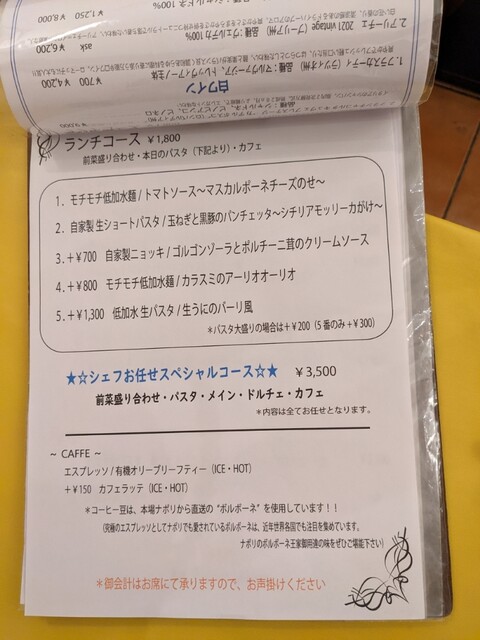 白ワイン
1. フラスカーティ
¥700
¥4,200
2. アリーチェ 2021 vintage
ask
¥6,200
¥1,250
¥8,000
ランチコース ¥1,800
前菜盛り合わせ・本日のパスタ(下記より)・カフェ
1. モチモチ低加水麺 / トマトソース〜マスカルポーネチーズのせ〜
2. 自家製 生ショートパスタ / 玉ねぎと黒豚のパンチェッタ〜シチリアモッリーカがけ〜
3. +¥700 自家製ニョッキ / ゴルゴンゾーラとポルチーニ茸のクリームソース
4. +¥800 モチモチ低加水麺 / カラスミのアーリオオーリオ
5. +¥1,300 低加水 生パスタ / 生うにのバーリ風
*パスタ大盛りの場合は+¥200(5番のみ+¥300)
★☆シェフお任せスペシャルコース☆★ ¥3,500
前菜盛り合わせ・パスタ・メイン・ドルチェ・カフェ
*内容は全てお任せとなります。
~ CAFFE ~
エスプレッソ / 有機オリーブリーフティー(ICE・HOT)
+¥150 カフェラッテ(ICE・HOT)
*コーヒー豆は、本場ナポリから直送の"ボルボーネ"を使用しています!!
(究極のエスプレッソとしてナポリでも愛されているボルボーネは、近年世界各国でも注目を集めています。
ナポリのボルボーネ王家御用達の味をぜひご堪能下さい)
*御会計はお席にて承りますので、お声掛けください